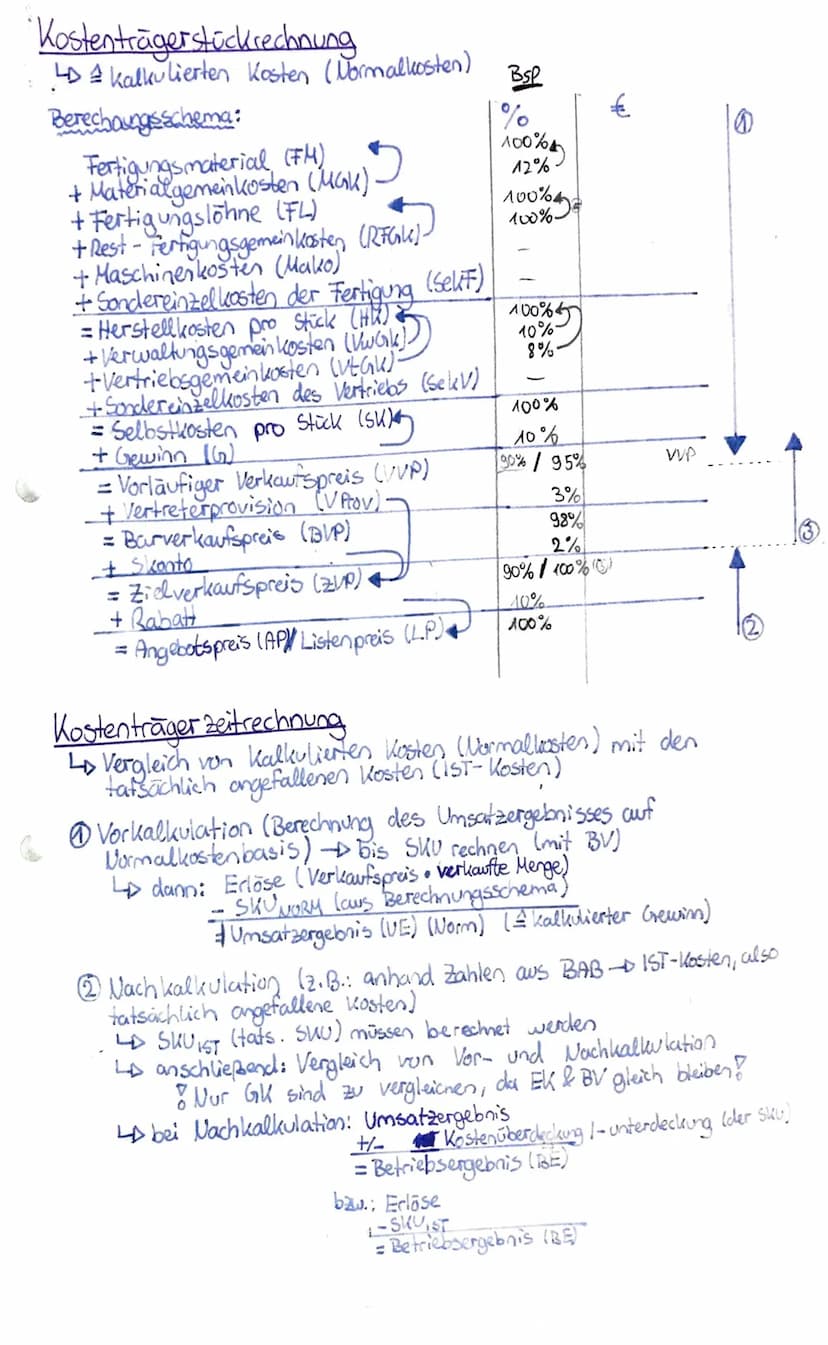 Kostenträgerstückrechnung
↳ ≙ kalkulierten Kosten (Normalkosten)
Bsp
Berechnungsschema:
% €
①
Fertigungsmaterial (FM) 100%
+ Materialgemeinkosten (MGK) 12%
+ Fertigungslöhne (FL) 100%
+ Rest-Fertigungsgemeinkosten (RFGK) 100%
+ Maschinenkosten (Mako) –
+ Sondereinzelkosten der Fertigung (SekF) –
= Herstellkosten pro Stück (HK) 100%
+ Verwaltungsgemeinkosten (VwGK) 10%
+ Vertriebsgemeinkosten (VtGK) 8%
+ Sondereinzelkosten des Vertriebs (SekV) –
= Selbstkosten pro Stück (SK) 100%
+ Gewinn (G) 10%
= Vorläufiger Verkaufspreis (VVP) 90% / 95% VVP
+ Vertreterprovision (VProv) 3%
= Barverkaufspreis (BVP) 98%
③
+ Skonto 2%
= Zielverkaufspreis (ZVP) 90% / 100%
+ Rabatt 10%
= Angebotspreis (AP) / Listenpreis (LP) 100%
②
Kostenträgerzeitrechnung
↳ Vergleich von kalkulierten Kosten (Normalkosten) mit den
tatsächlich angefallenen Kosten (IST-Kosten)
① Vorkalkulation (Berechnung des Umsatzergebnisses auf
Normalkostenbasis) → bis SKU rechnen (mit BV)
↳ dann: Erlöse (Verkaufspreis • verkaufte Menge)
- SKU NORM (aus Berechnungsschema)
= Umsatzergebnis (UE) (Norm) (≙ kalkulierter Gewinn)
② Nachkalkulation (z.B.: anhand Zahlen aus BAB → IST-Kosten, also
tatsächlich angefallene Kosten)
↳ SKU IST (tats. SKU) müssen berechnet werden
↳ anschließend: Vergleich von Vor- und Nachkalkulation
! Nur GK sind zu vergleichen, da EK & BV gleich bleiben!
↳ bei Nachkalkulation: Umsatzergebnis
+/- Kostenüberdeckung /-unterdeckung (der SKU)
= Betriebsergebnis (BE)
bzw.: Erlöse
- SKU IST
= Betriebsergebnis (BE)